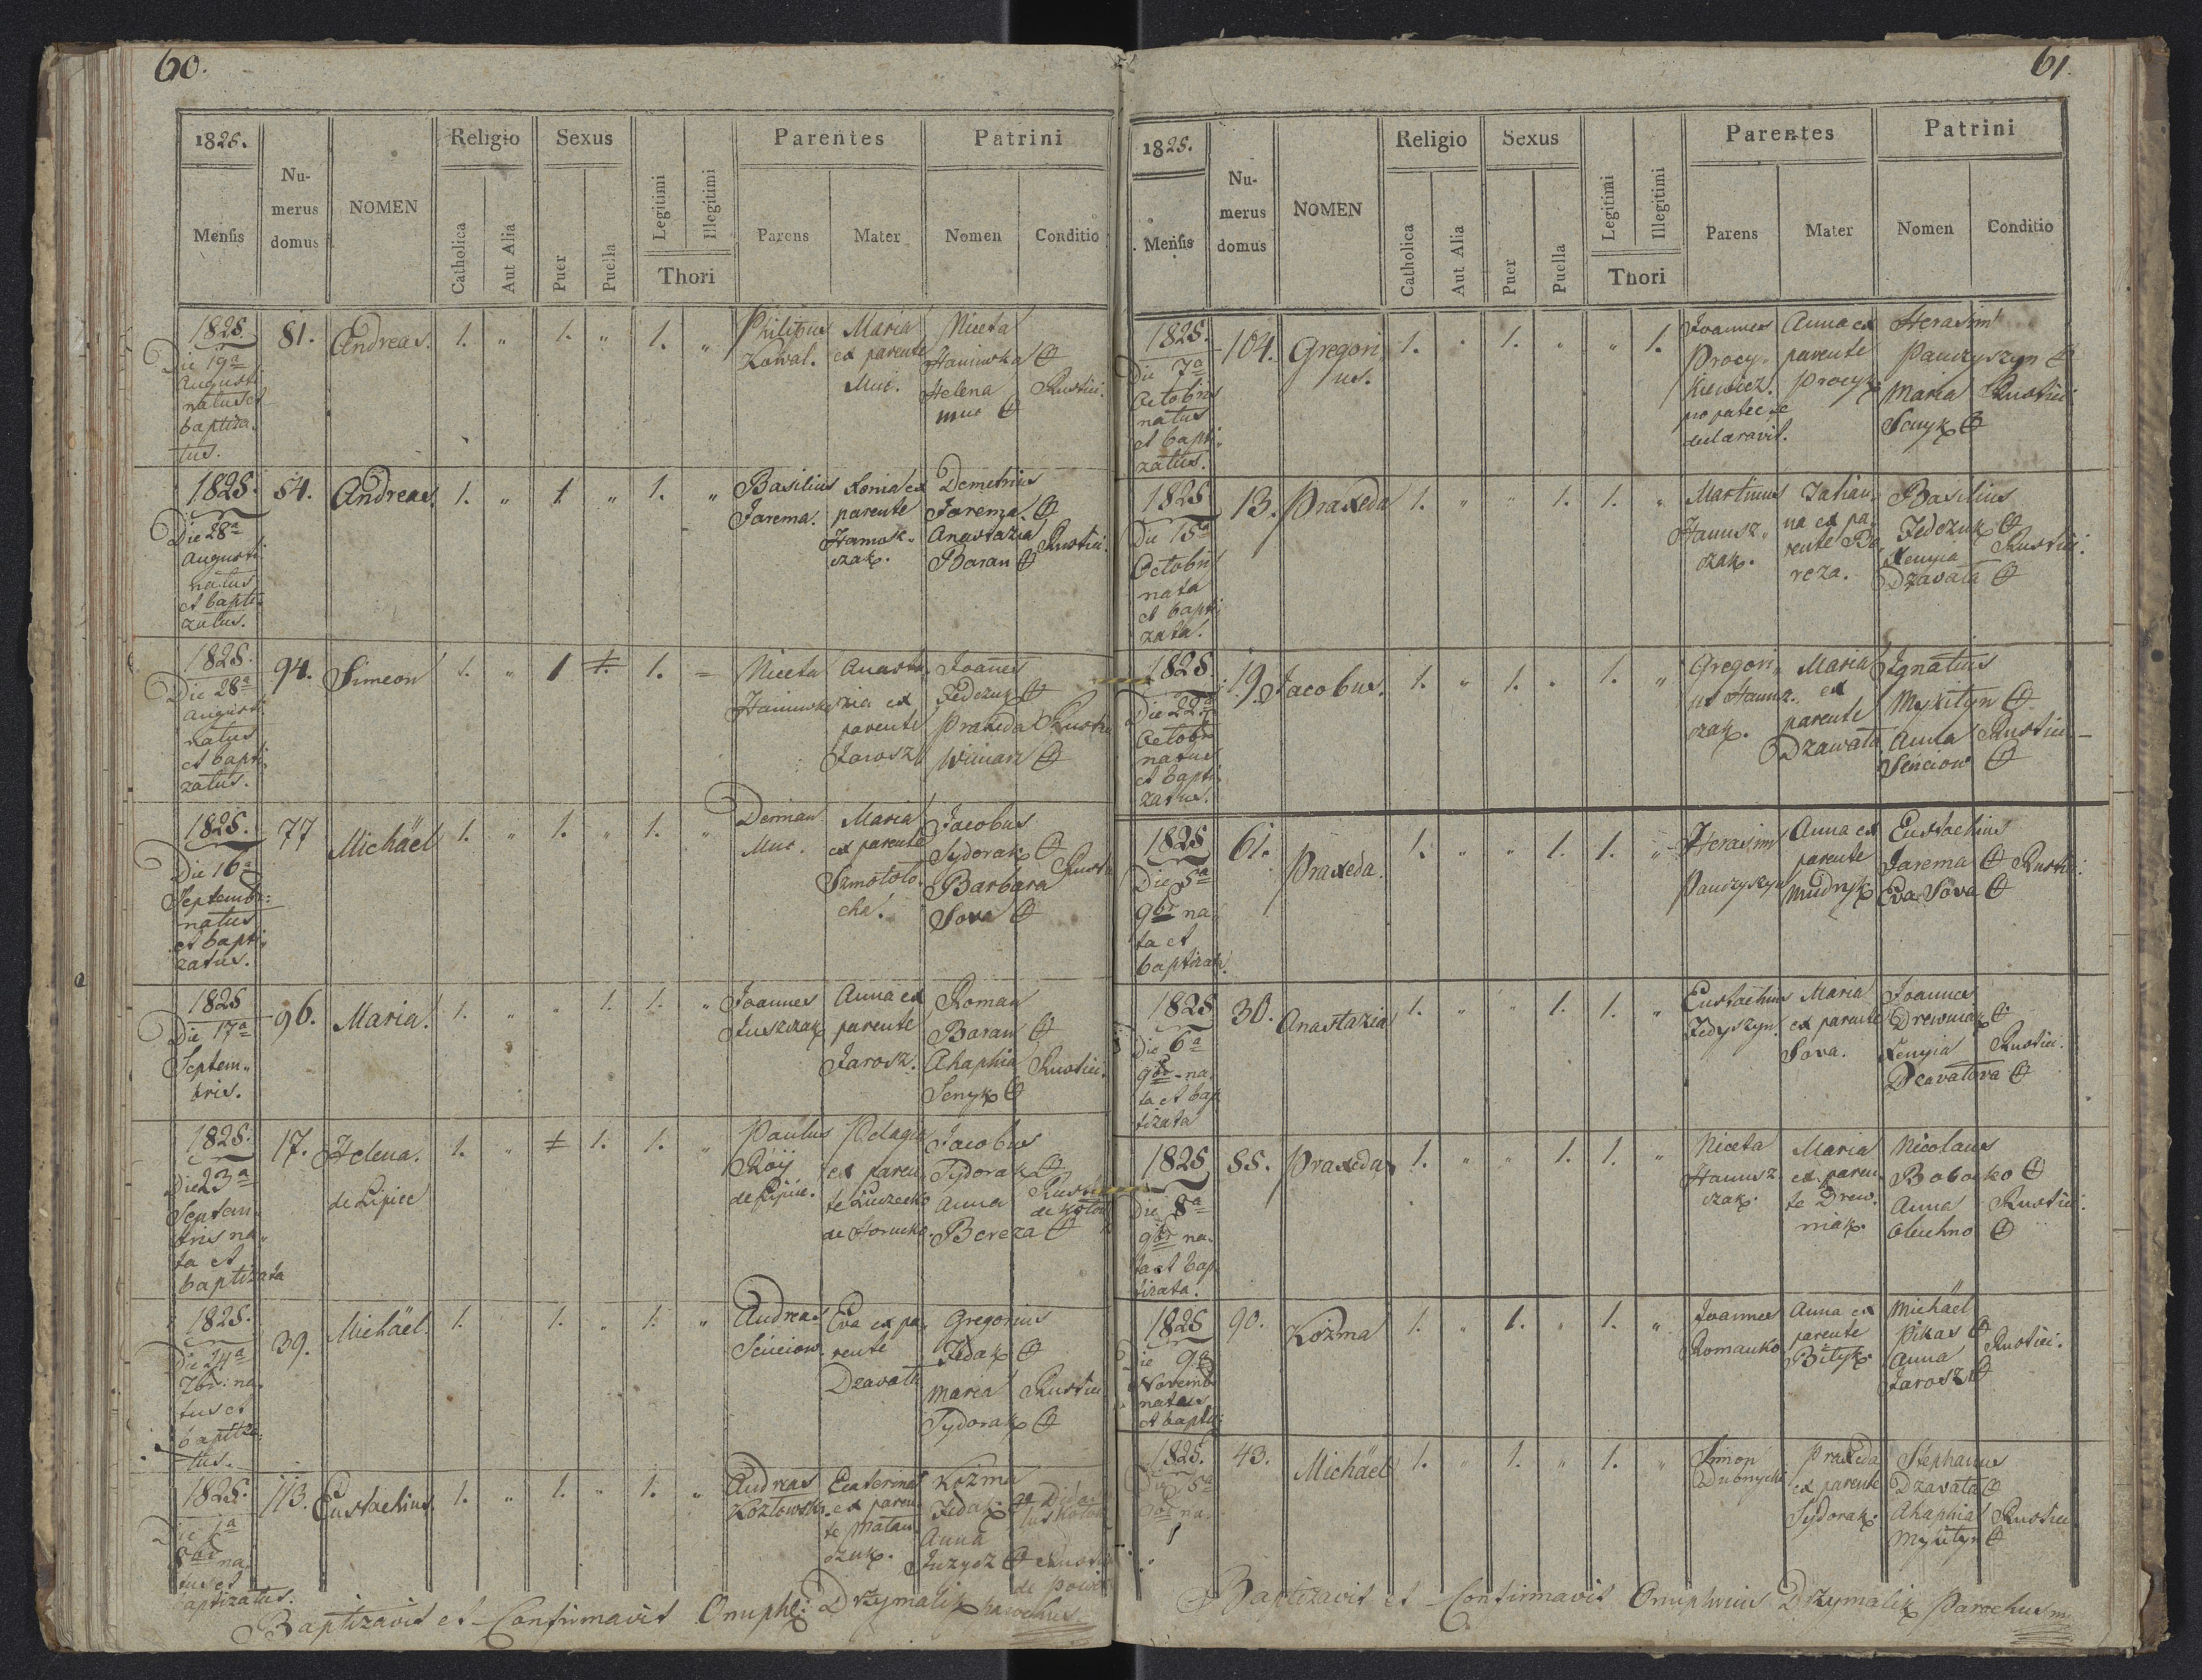 60.
1825.
Mensis
Nu-
merus
domus
NOMEN
Religio
Catholica
Aut Alia
Sexus
Puer
Puella
Legitimi
Illegitimi
Thori
Parentes
Parens
Mater
Patrini
Nomen
Conditio
1825.
Die 19a
Augusti
natus et
baptiza-
tus.
81.
Andreas.
1. " 1. " 1. "
Philipus
Kowal.
Maria
ex parente
Muc.
Niceta
Haniuwka
Helena
Muc
Rustici.
1825.
Die 28a
Augusti
natus
et bapti-
zatus.
54.
Andreas.
1. " 1 " 1. "
Basilius
Jarema.
Xenia ex
parente
Harnok-
czak.
Demetrius
Jarema.
Anastazia
Baran
Rustici.
1825.
Die 28a
Augusti
natus
et bapti-
zatus.
94.
Simeon
1. " 1 1. 1. =
Niceta
Haniuwka
Anasta-
zia ex
parente
Jarosz
Joanes
Fedczuk
Praxeda
Winiarz
Rustici
1825.
Die 16a
Septemb:
natus
et bapti-
zatus.
77
Michäel
1. " 1. " 1. "
Demian
Muc.
Maria
ex parente
Szmoloto-
cha.
Jacobus
Sydorak
Barbara
Sova
Rustici
1825
Die 17a
Septem-
bris.
96.
Maria.
1. " " 1. 1. "
Joannes
Juszczak
Anna ex
parente
Jarosz.
Roman
Baran
Ahaphia
Senyk
Rustici.
1825.
Die 23a
Septem-
bris na-
ta et
baptizata
17.
Helena.
de Lipice
1. " 1 1. 1. "
Paulus
Röÿ
de Lipice.
Pelagia
ex paren-
te
de
Jacobus
Sydorak
Anna
Bereza
Rustici
de
1825.
Die 24a
7br: na-
tus et
baptiza-
tus.
39.
Michäel.
1. 1. " 1. "
Andreas
Senciow.
Eva ex pa-
rente
Dzavala
Gregorius
Fedak
Maria
Sydorak
Rustici
1825.
Die 1a
8br na-
tus et
baptizatus.
113.
Eustachius.
1. " 1. " 1. "
Andreas
Kozlowski.
Ecaterina
ex paren-
te Matau-
czuk.
Kozma
Fedak
Anna
Juzycz
Rustici
de
Baptizavit et Confirmavit Onuph: Drzymalik parochus
61.
1825.
Mensis
Nu-
merus
domus
NOMEN
Religio
Catholica
Aut Alia
Sexus
Puer
Puella
Legitimi
Illegitimi
Thori
Parentes
Parens
Mater
Patrini
Nomen
Conditio
1825.
Die 7a
Octobris
natus
et bapti-
zatus.
104.
Gregori
us.
1. " 1. " " 1.
Joannes
Procy-
kiewicz.
pro patre se
declaravit.
Anna ex
parente
Procyk
Herasim
Panczyszyn
Maria
Senyk
Rustici
1825
Die 15a
Octobri
nata
et bapti-
zata.
13.
Praxeda
1. " " 1. 1. "
Martinus
Hanusz-
czak.
Tatian-
na ex pa-
rente Be-
reza.
Basilius
Fedczuk
Xenyia
Dzavala
Rustici.
1825.
Die 22a
Octobr
natus
et bapti-
zatus.
19.
Jacobus.
1. " 1. " 1. "
Gregori-
us Hanusz-
czak.
Maria
ex
parente
Dzawala
Ignatius
Mykityn
Anna
Senciow
Rustici
1825
Die 5a
9br na-
ta et
baptizata.
61.
Praxeda.
1. " " 1. 1. "
Herasim
Panczyszyn
Anna ex
parente
Mudryk
Eustachius
Jarema
Eva Sova
Rustici:
1825
Die 6a
9br - na-
ta et bap-
tizata
30.
Anastazia
1. " " 1. 1. "
Eustachius
Fedyszyn.
Maria
ex parente
Sova.
Joannes
Drewniak
Xenyia
Dzavalova
Rustici.
1825
Die 8a
9br na-
ta et bap-
tizata.
55.
Praxeda
1. " " 1. 1. "
Niceta
Hanusz-
czak.
Maria
ex paren-
te Drew-
niak.
Nicolaus
Babocko
Anna
Oleuhno
Rustici.
1825
Die 9a
Novemb
natus
et bapti:
90.
Kozma
1. " 1. " 1. "
Joannes
Romanko
Anna ex
parente
Bityk.
Michäel
Pikas
Anna
Jarosz
Rustici.
1825.
Die 15a
9br na-
43.
Michäel
1. " 1. " 1. "
Simon
Dubnycki
Praxeda
ex parente
Sydorak.
Stephanus
Dzavala
Ahaphia
Mykityn
Rustici
Baptizavit et Confirmavit Onuphrius Drzymalik Parochus